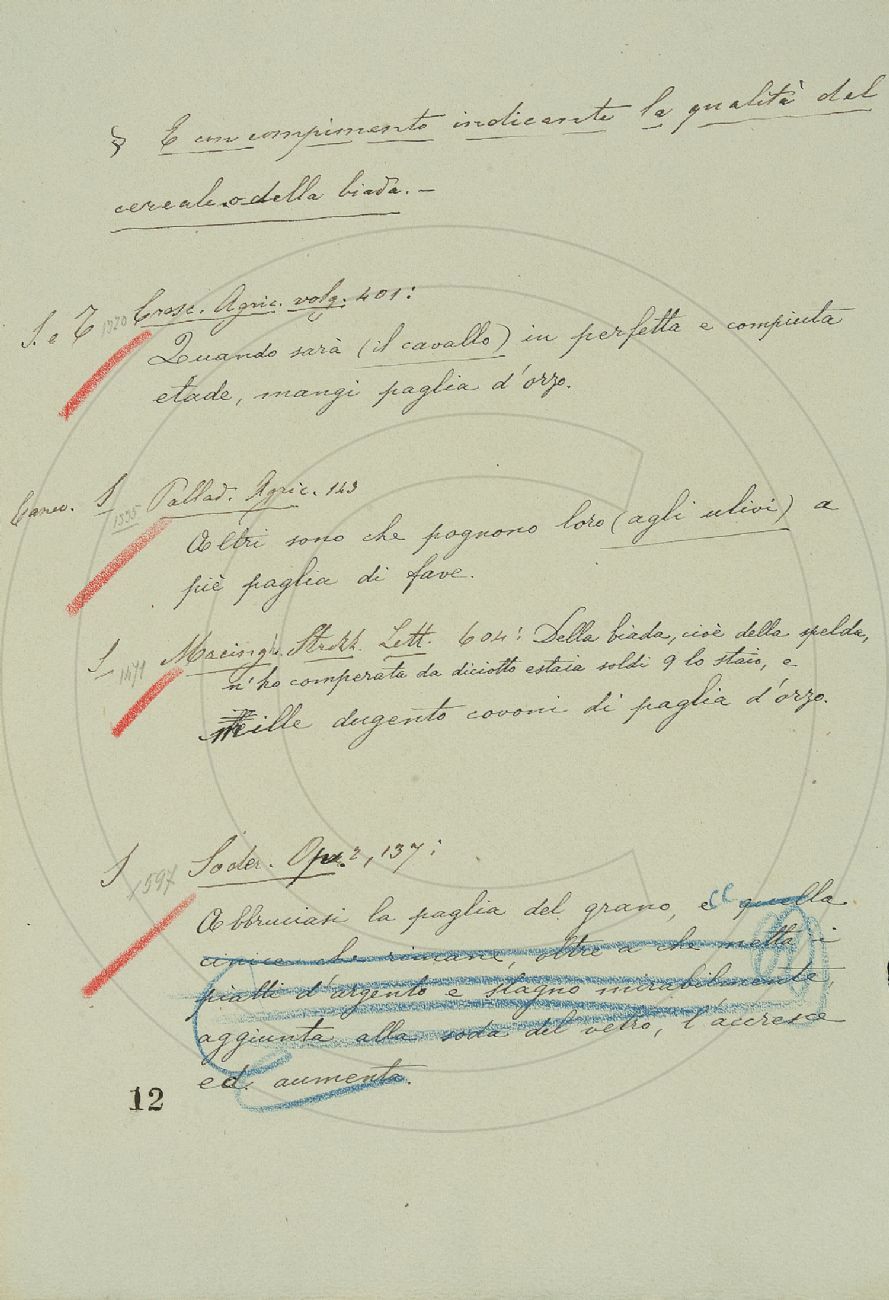 § E un compimento indicante la qualità del
cereale o della biada. –
S. e T 1320 Cresc. Agric. volg. 401:
Quando sarà (il cavallo) in perfetta e compiuta
etade, mangi paglia d'orzo.
S 1335 Pallad. Agric. 143
Altri sono che pognono loro (agli ulivi) a
piè paglia di fave.
S 1471 Macingh. Strozz. Lett. 604: Della biada, cioè della spelda,
n'ho comperata da diciotto estaia soldi 9 lo staio, e
mille dugento covoni di paglia d'orzo.
S 1597 Soder. Op. 2, 137:
Abbruciasi la paglia del grano, e quella
cinice che rimane, oltre a che netta i
piatti d'argento e stagno mirabilmente,
aggiunta alla soda del vetro, l'accresce
ed aumenta.
12